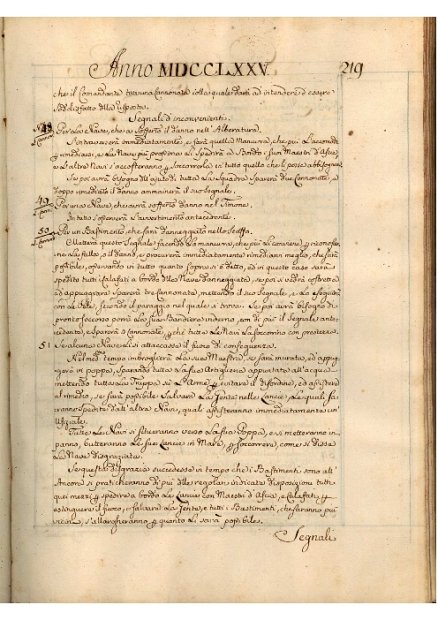 Anno MDCCLXXV. 219
che il Comandante tirerà una Cannonata colla quale darà ad intendere d'essere
soddisfatto della risposta.
Segnali d'inconvenienti.
48 Per una Nave, che à sofferto il danno nell'Alberatura.
S'intraverserà immediatamente, e farà quella Manovra, che più le
rimediarsi, e le Navi più prossime le spedirà a Bordo i suoi Maestri d'Ascia
e l'altre Navi s'accosteranno per soccorrerla in tutto quello che le possa abbisognare.
Se poi avrà bisogno dell'ajuto di tutta la Squadra sparerà due Cannonate, e
doppo rimediato il danno ammainerà il suo Segnale.
49 Per una Nave, che avrà sofferto danno nel Timone.
In tutto s'osserverà l'avvertimento antecedente.
50 Per un Bastimento, che sarà danneggiato nello Scaffo.
Allatterà questo Segnale facendo la manovra, che più le conviene per riconoscere
nella stiva il danno, e procurerà immediatamente rimediarvi meglio, che sarà
possibile, operando in tutto quanto sopra si è detto, ed in questo caso sarà
spedito tutti i Calafati a bordo della Nave danneggiata; se poi si vedrà costretta
ad appoggiare sparerà tre Cannonate, mettendo il suo Segnale, e sarà seguita
con la secondo il paraggio nel quale si trova. Se poi avrà bisogno di
pronto soccorso porrà la sua Bandiera in derno, con di più il Segnale ante-
cedente, e sparerà 5 Cannonate, perchè tutte le Navi la soccorrino con prestezza.
51 Se alcuna Nave se li attaccasse il fuoco di conseguenza.
Nel med.mo tempo imbroglierà la sua Maestra, se sarà murata, ed appog-
gierà in poppa, sparando tutta la sua Artiglieria appuntata all'acqua
mettendo tutta la Truppa su l'Arme per evitare il disordine, ed assistere
al rimedio, se sarà possibile salvare la Gente nelle Lancie, le quali sa-
ranno spedite dall'altre Navi, quali assisteranno immediatamente un
Uffiziale.
Tutte le Navi si sitieranno verso la sua Poppa, e si metteranno in
panno, butteranno le sue Lancie in Mare, per soccorrere, come si disse
la Nave disgraziata.
Se questa disgrazia succedesse in tempo che i Bastimenti sono all'
Ancora si praticheranno di più delle regolari indicate disposizioni tutti
quei mezzi per spedire a bordo le Lancie con Maestri d'Ascia, e Calafati per
estinguere il fuoco, e salvare la Gente, e tutti i Bastimenti, che saranno più
vicini, s'allargheranno per quanto le sarà possibile.
Segnali